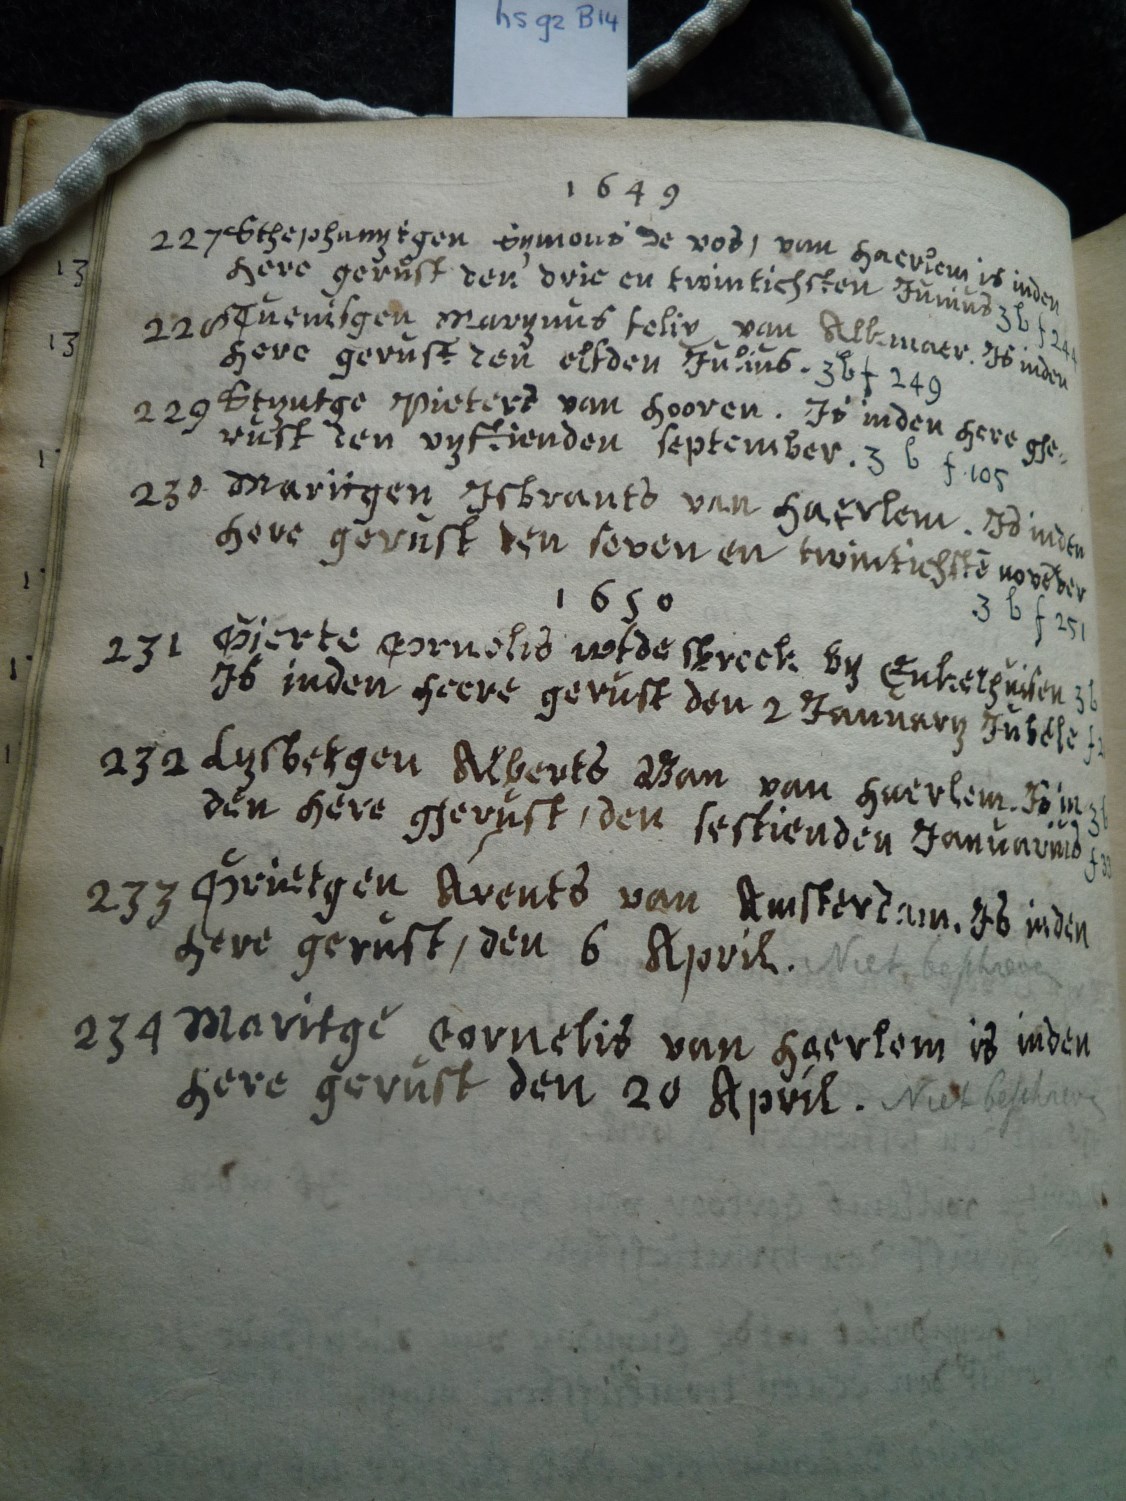 hs g2 B14
1649
227 Sthephanytgen Symons de vos, van haerlem is inden
13
here gerust den drie en twintichsten Junius 3 b f 244
228 Tuenisgen Marynus van Alkmaer. Is inden
13
here gerust den elfden Julius. 3 b f 249
229 Styntge Pieters van hooren. Is inden here ghe-
rust den vyftienden september. 3 b f 105
230 Mariitgen Isbrants van haerlem. Is inden
here gerust den seven en twintichstē novēber
3 b f 251
1650
231 Gierte Cornelis wtde streek by Enkelhuisen 3 b
Is inden heere gerust den 2 January Jubele f
232 Lysbetgen Alberts Ban van haerlem. Is in 3 b
den here gherust, den sestienden Januarius f
233 Grietgen Arents van Amsterdam. Is inden
here gerust, den 6 April. Niet beschreven
234 Maritge Cornelis van haerlem is inden
here gerust den 20 April. Niet beschreve